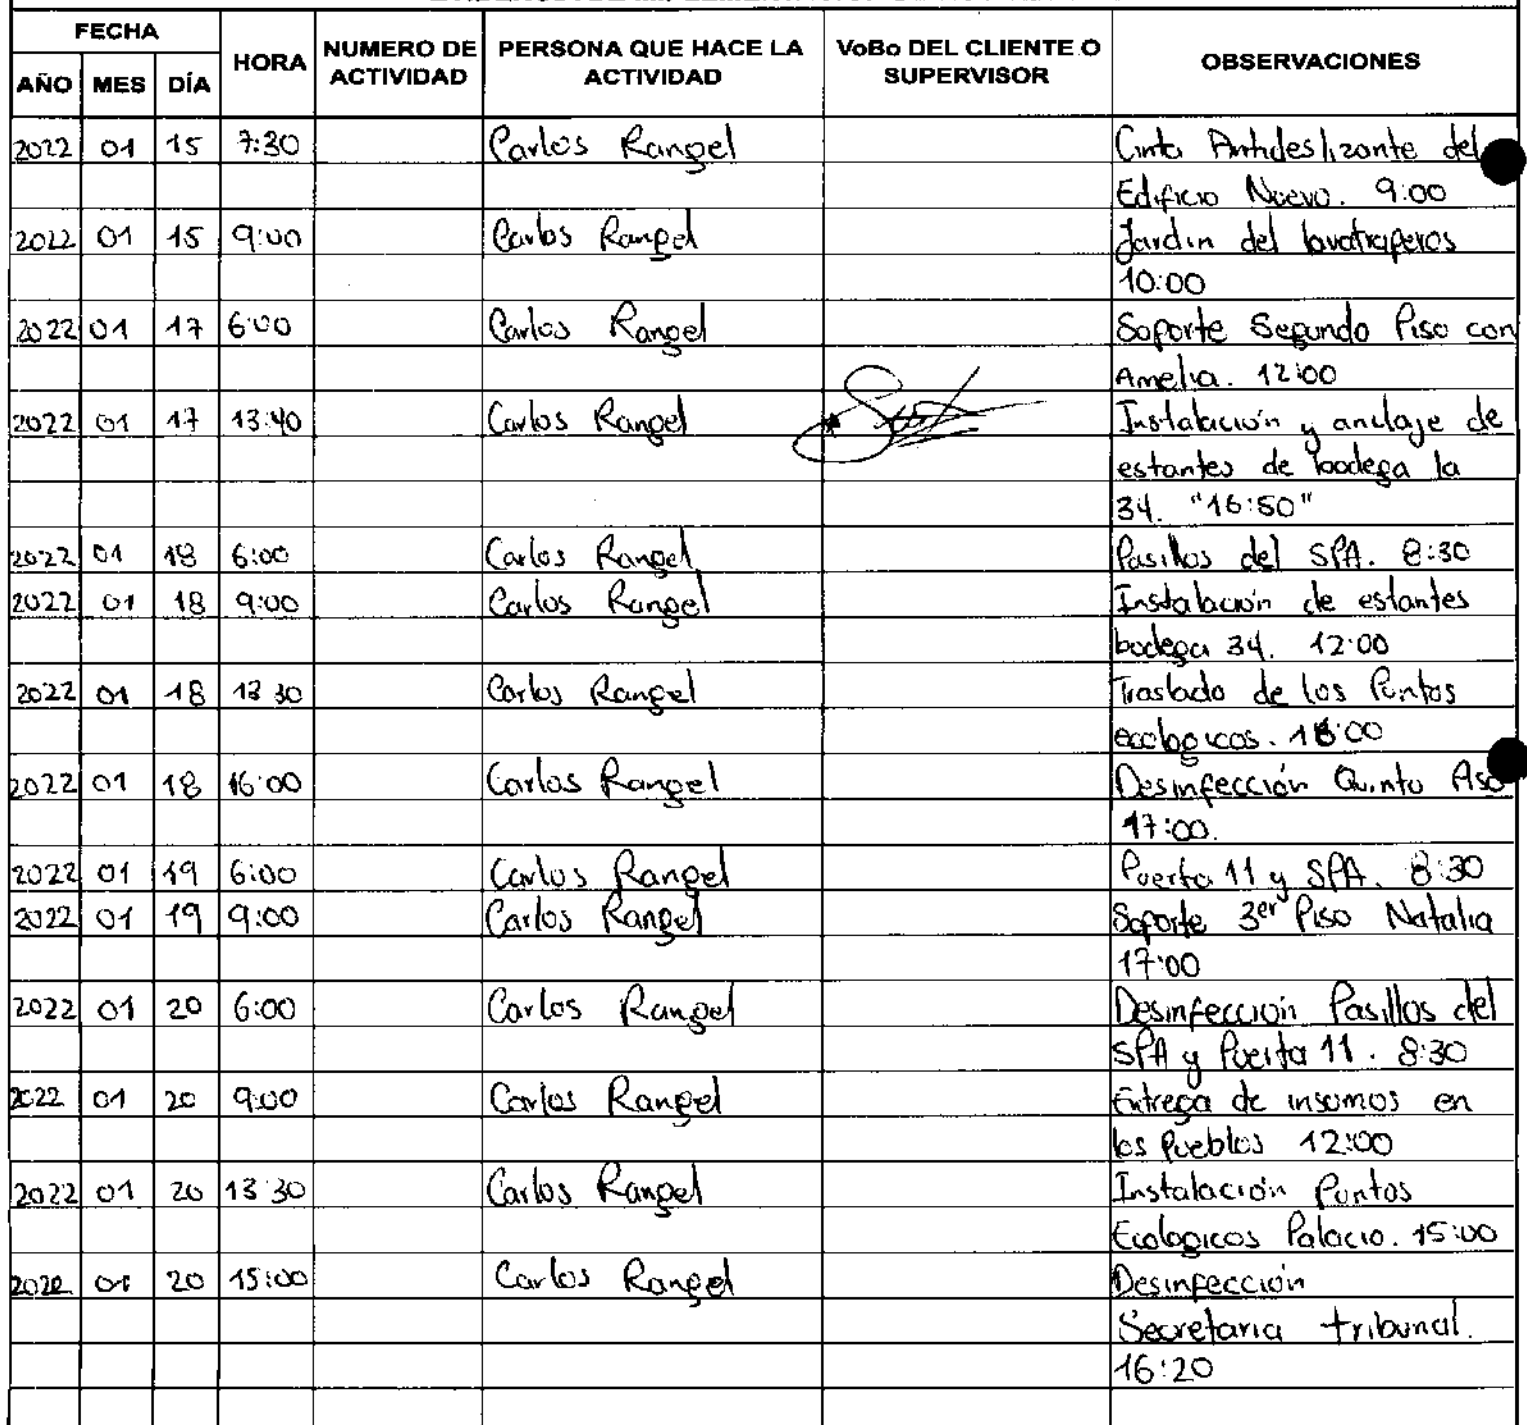 FECHA
HORA
NUMERO DE ACTIVIDAD
PERSONA QUE HACE LA ACTIVIDAD
VoBo DEL CLIENTE O SUPERVISOR
OBSERVACIONES
AÑO MES DÍA
2022 01 15 7:30 Carlos Rangel Cinta Antideslizante del
Edificio Nuevo. 9:00
2022 01 15 9:00 Carlos Rangel Jardin del lavatraperos
10:00
2022 01 17 6:00 Carlos Rangel Soporte Segundo Piso con
Amelia. 12:00
2022 01 17 13:40 Carlos Rangel Instalación y anclaje de
estantes de bodega la
34. "16:50"
2022 01 18 6:00 Carlos Rangel Pasillos del SPA. 8:30
2022 01 18 9:00 Carlos Rangel Instalación de estantes
bodega 34. 12:00
2022 01 18 13 30 Carlos Rangel Traslado de los Puntos
ecologicos.
2022 01 18 16:00 Carlos Rangel Desinfección Quinto Piso
17:00.
2022 01 19 6:00 Carlos Rangel Puerta 11 y SPA. 8:30
2022 01 19 9:00 Carlos Rangel Soporte 3er Piso Natalia
17:00
2022 01 20 6:00 Carlos Rangel Desinfección Pasillos del
SPA y Puerta 11. 8:30
2022 01 20 9:00 Carlos Rangel Entrega de insumos en
los Pueblos 12:00
2022 01 20 13 30 Carlos Rangel Instalación Puntos
Ecologicos Palacio. 15:00
2022 01 20 15:00 Carlos Rangel Desinfección
Secretaria tribunal.
16:20